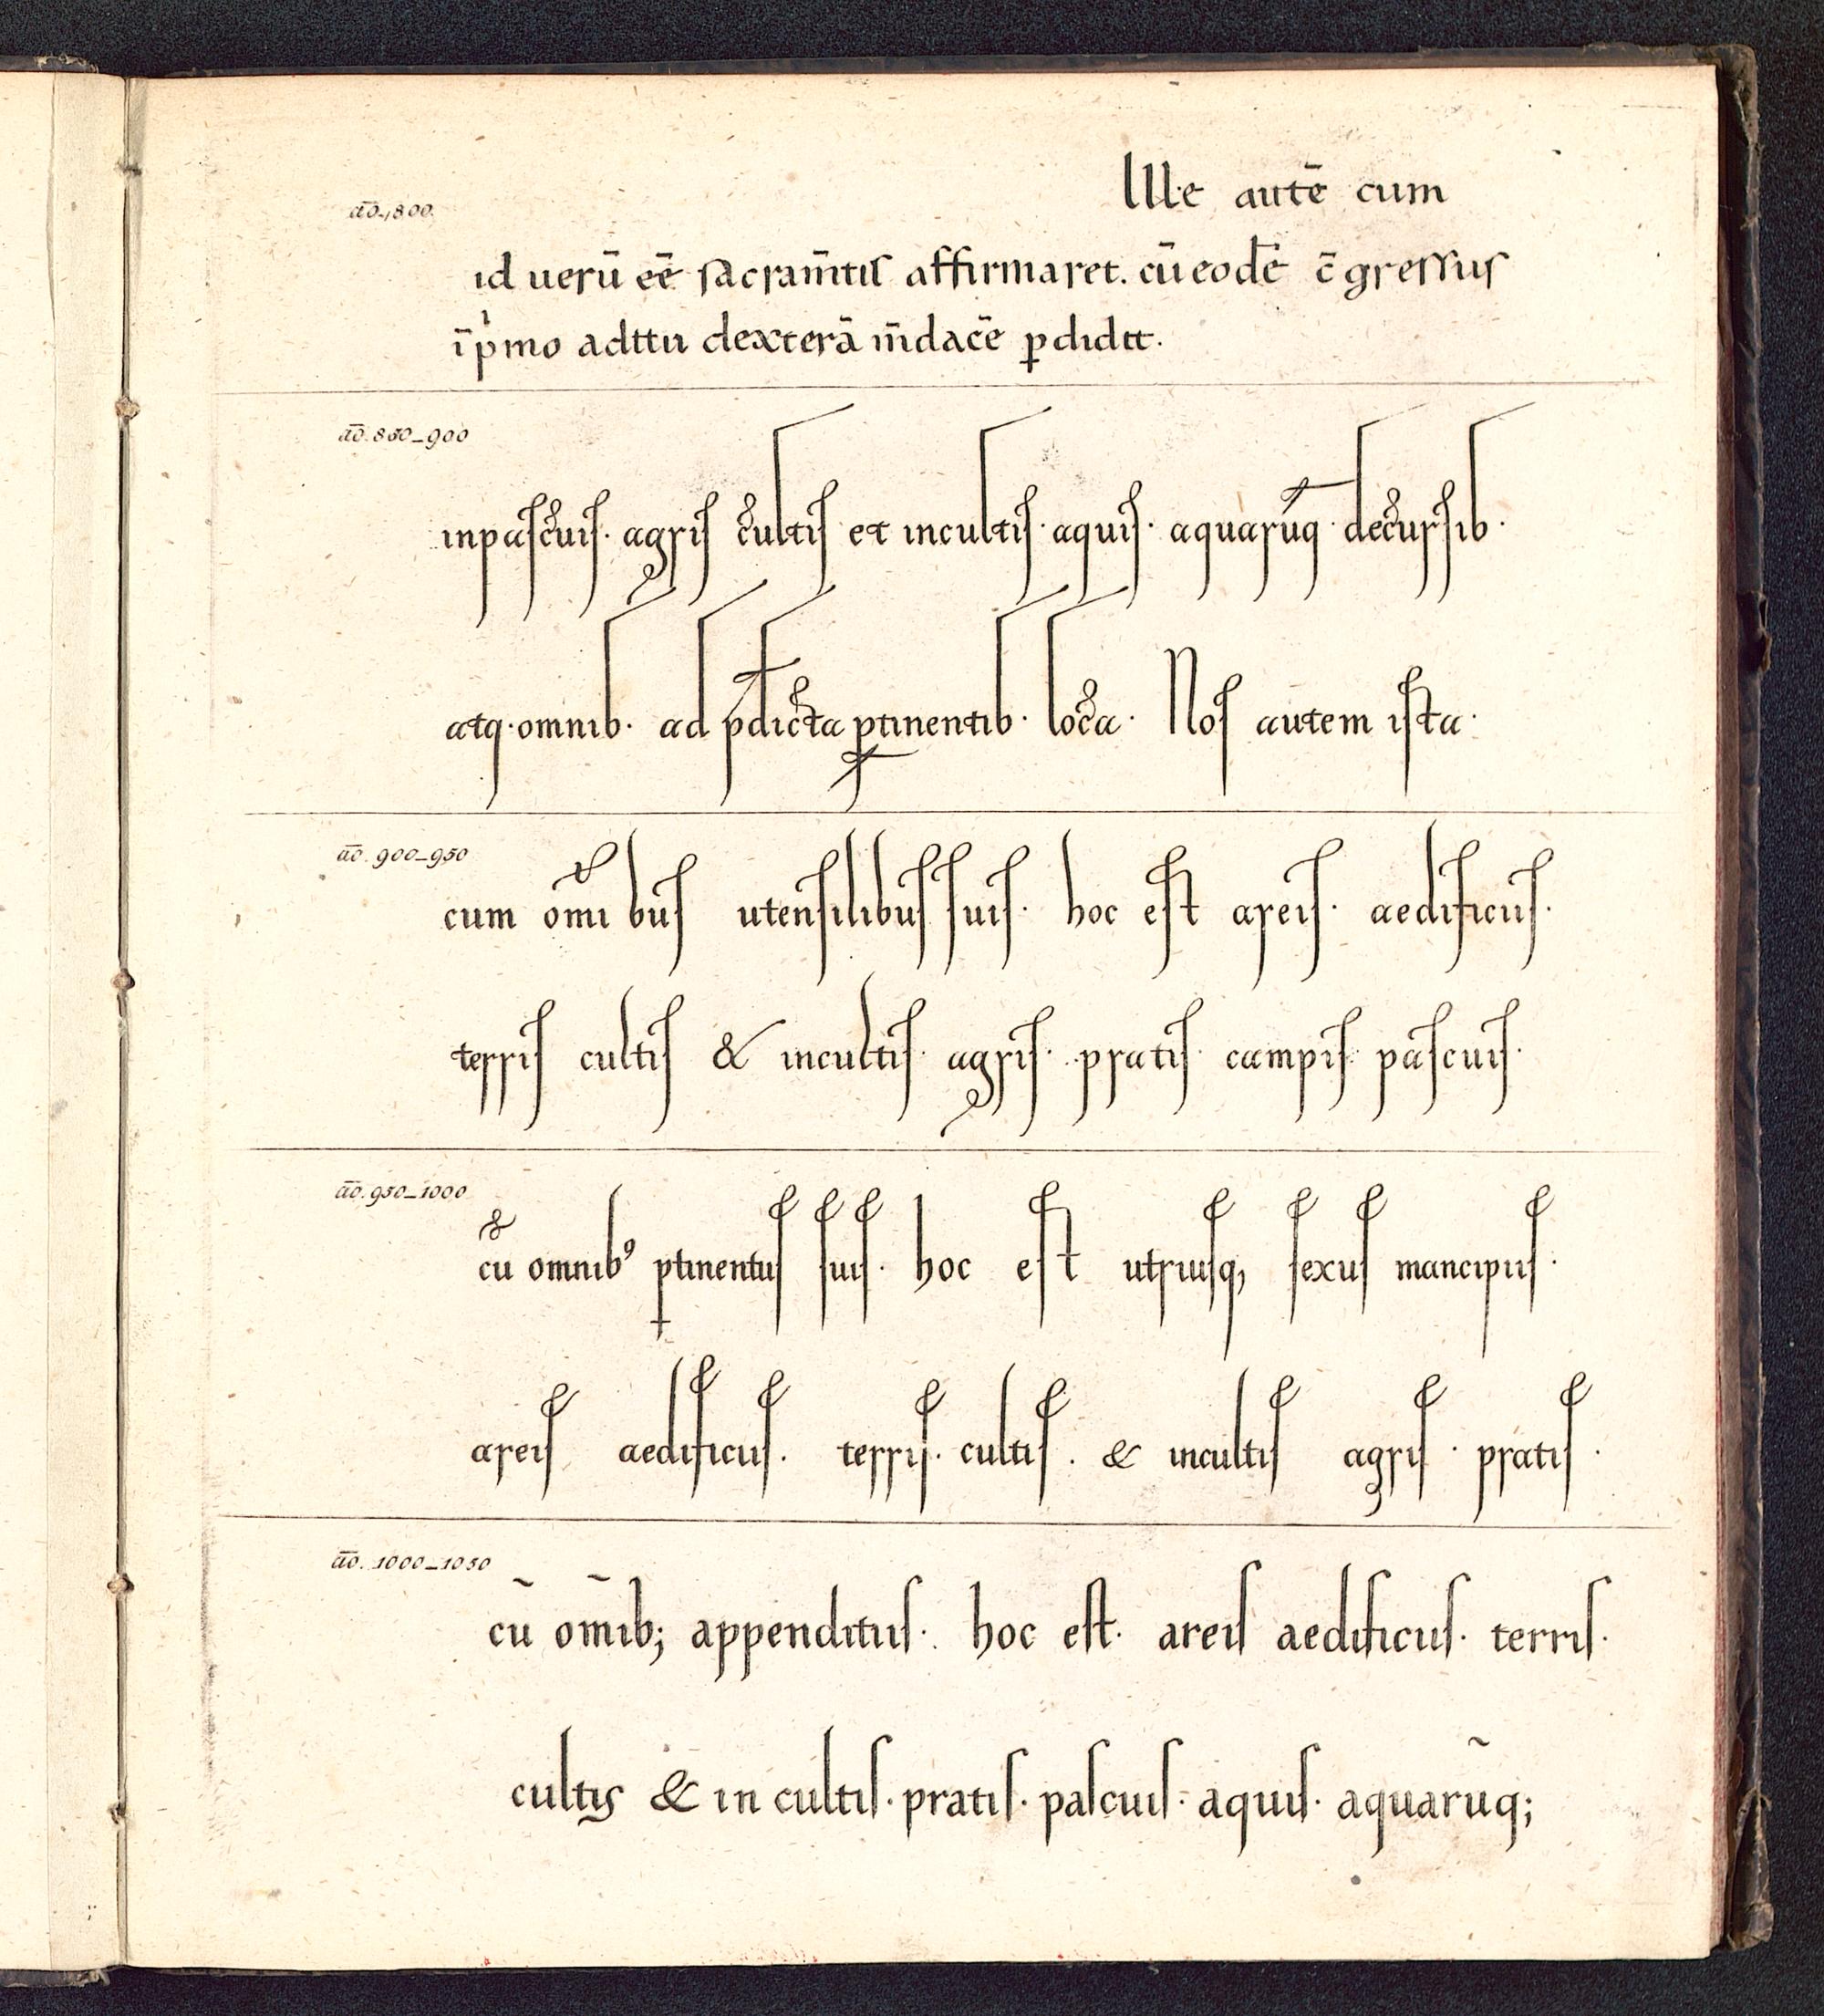 aō. 800.
Ille autē cum
id uerū eē sacram̄tis affirmaret. cū eodē c̄gressus
īpͥmo aditu dexterā m̄dacē ꝑdidit.
aō. 850_900
inpascuis. agris cultis et incultis. aquis. aquarūq. decursib.
atq. omnib. ad p̄dicta ꝑtinentib. loca. Nos autem ista.
aō. 900_950
cum om̄ibus utensilibus suis. hoc est areis. aedificiis.
terris cultis & incultis. agris. pratis. campis. pascuis.
aō. 950_1000
cū omnibꝰ ꝑtinentiis suis. hoc est utriusq, sexus mancipiis.
areis aedificiis. terris. cultis. & incultis agris. pratis.
aō. 1000_1050
cū om̄ib; appenditiis. hoc est. areis aedificiis. terris.
cultis & in cultis. pratis. pascuis. aquis. aquarūq;